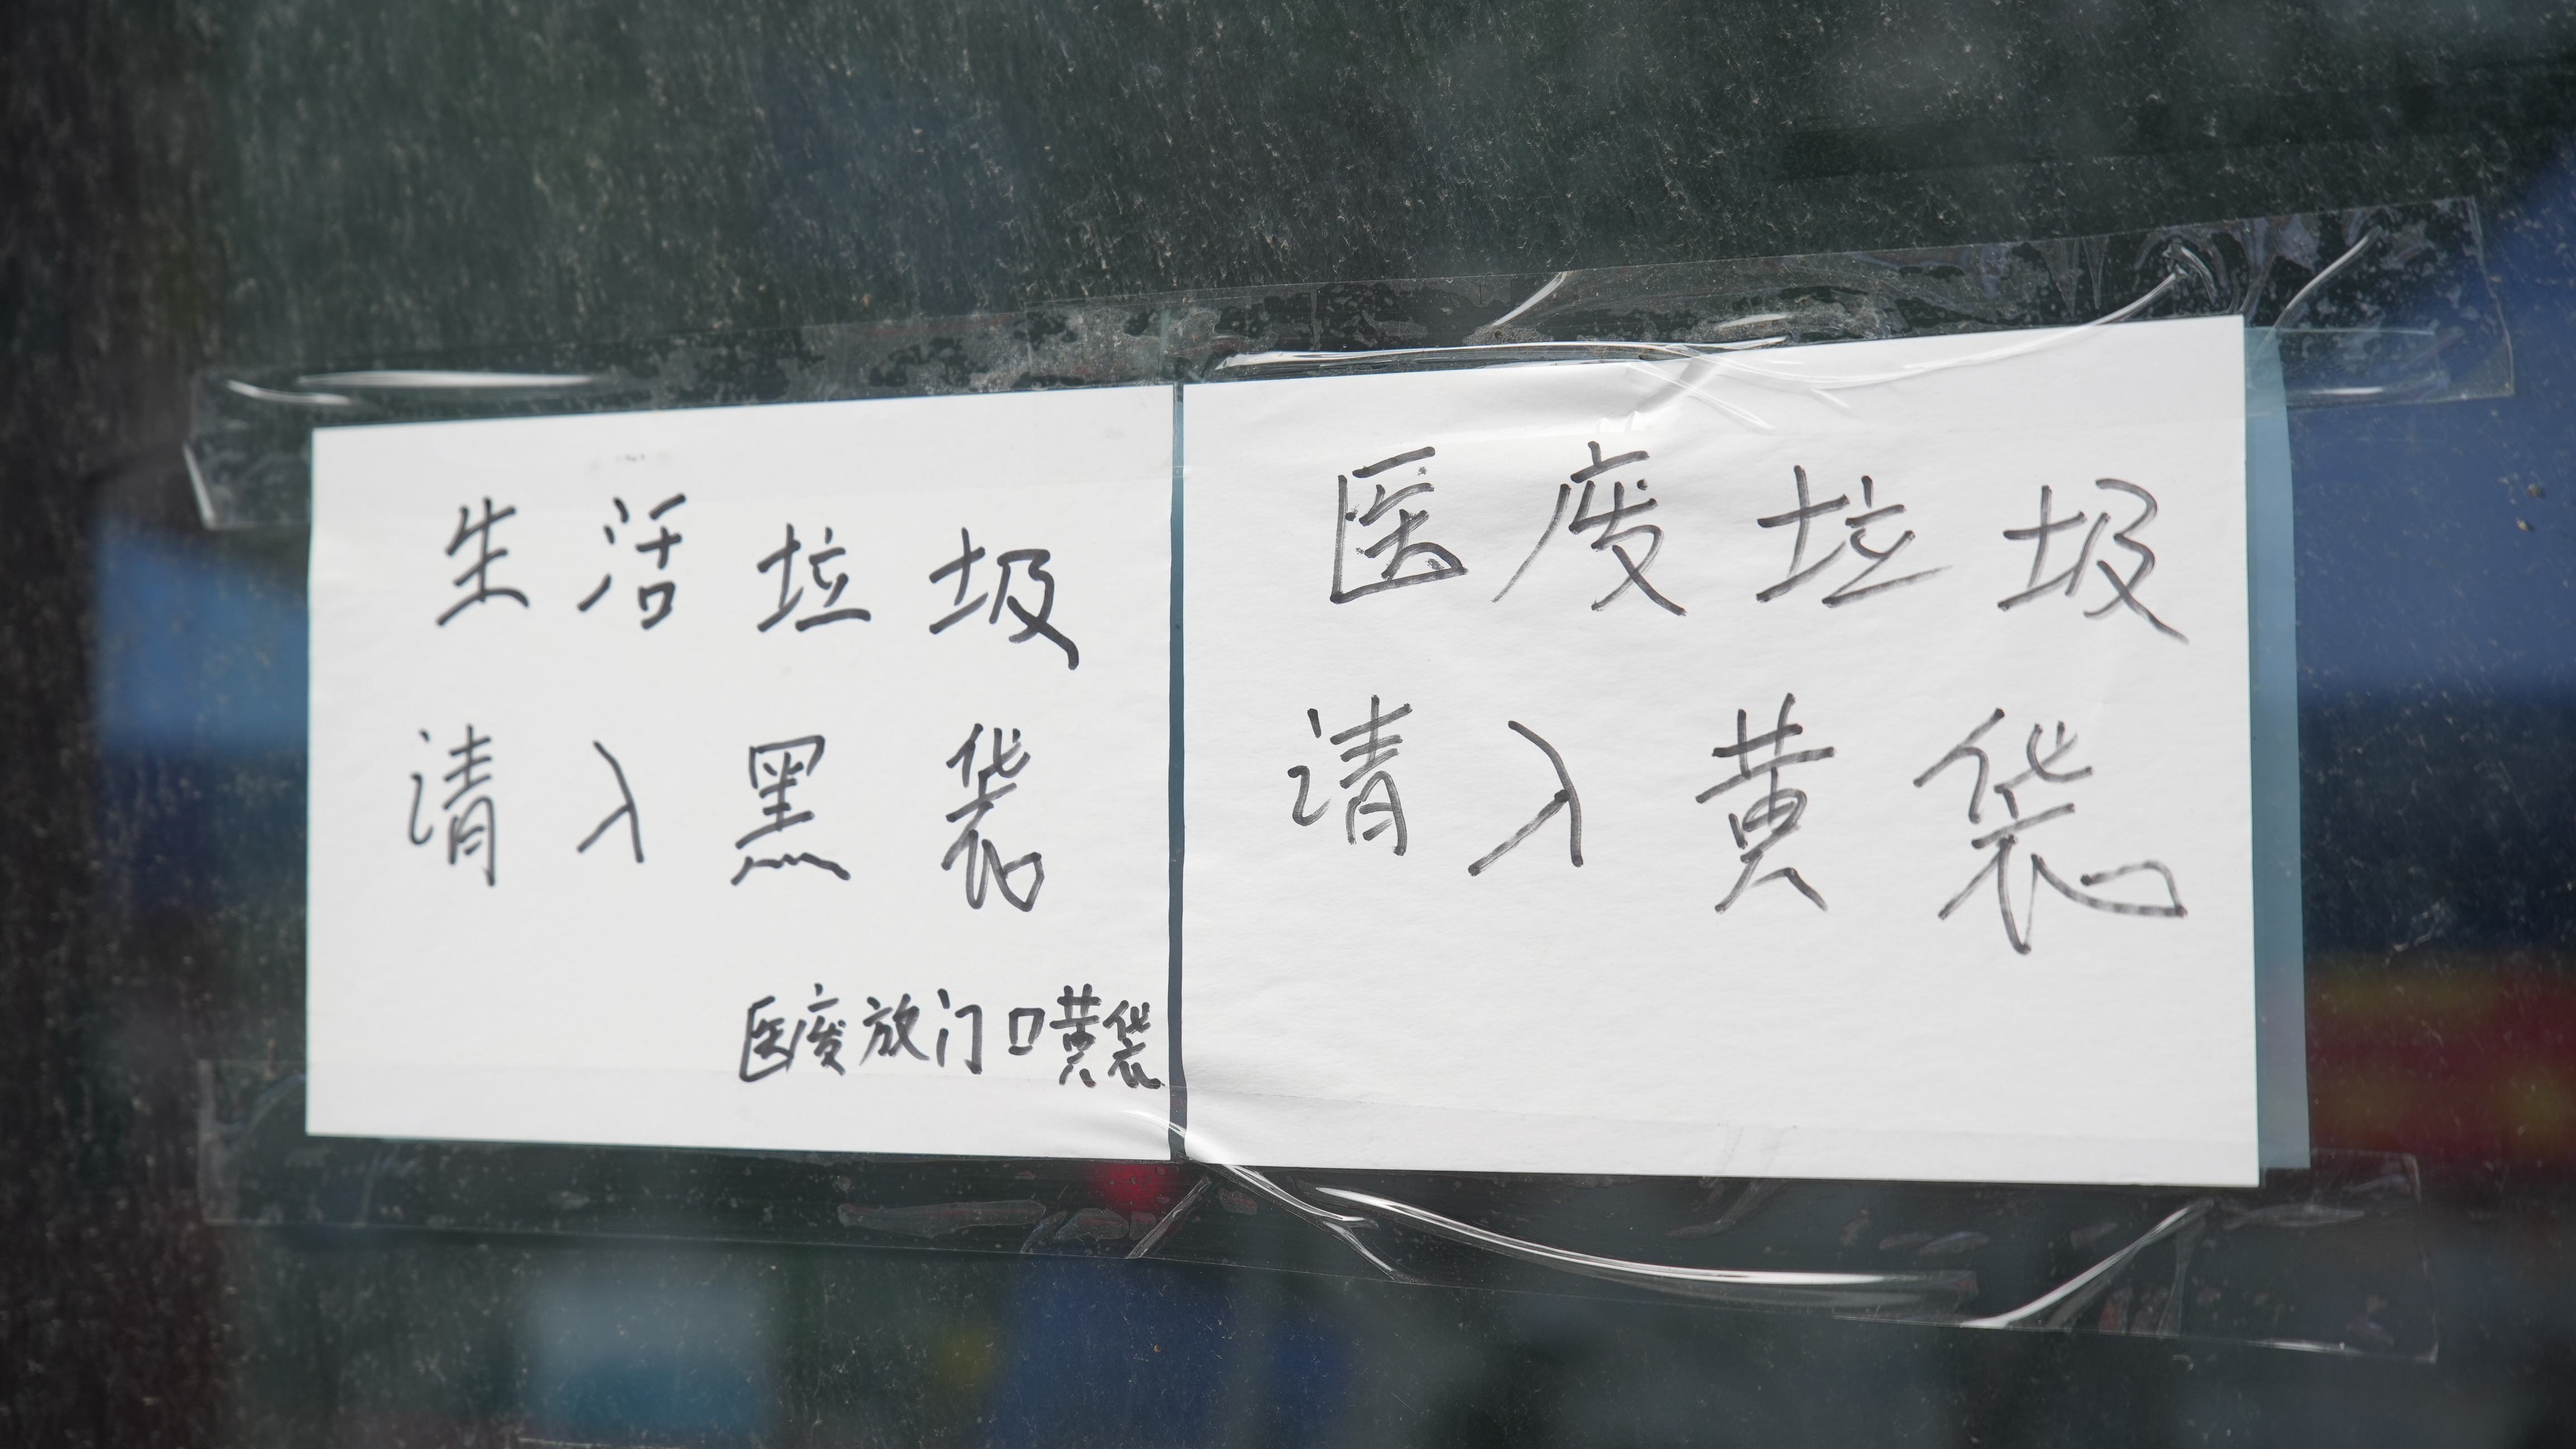 生活垃圾
请入黑袋
医废放门口黄袋
医废垃圾
请入黄袋